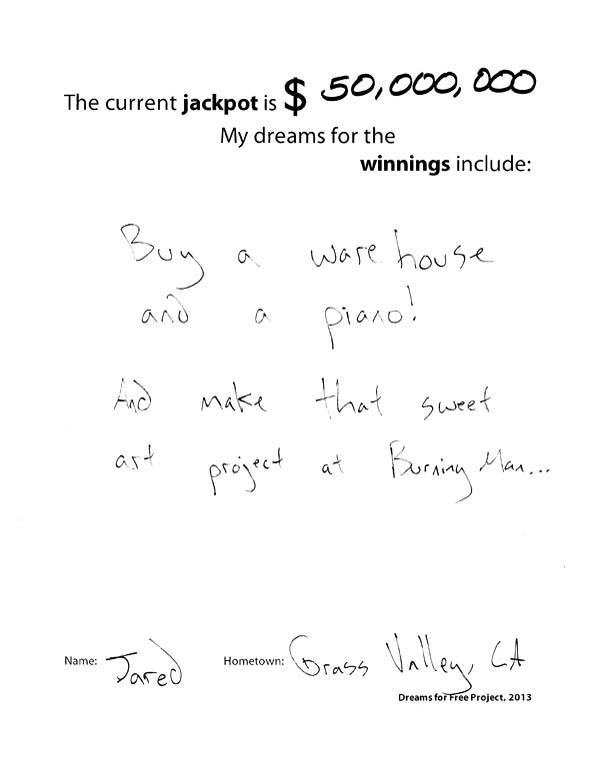 The current jackpot is $ 50,000,000
My dreams for the
winnings include:
Buy a warehouse
and a piano!
And make that sweet
art project at Burning Man...
Name: Jared Hometown: Grass Valley, CA
Dreams for Free Project, 2013